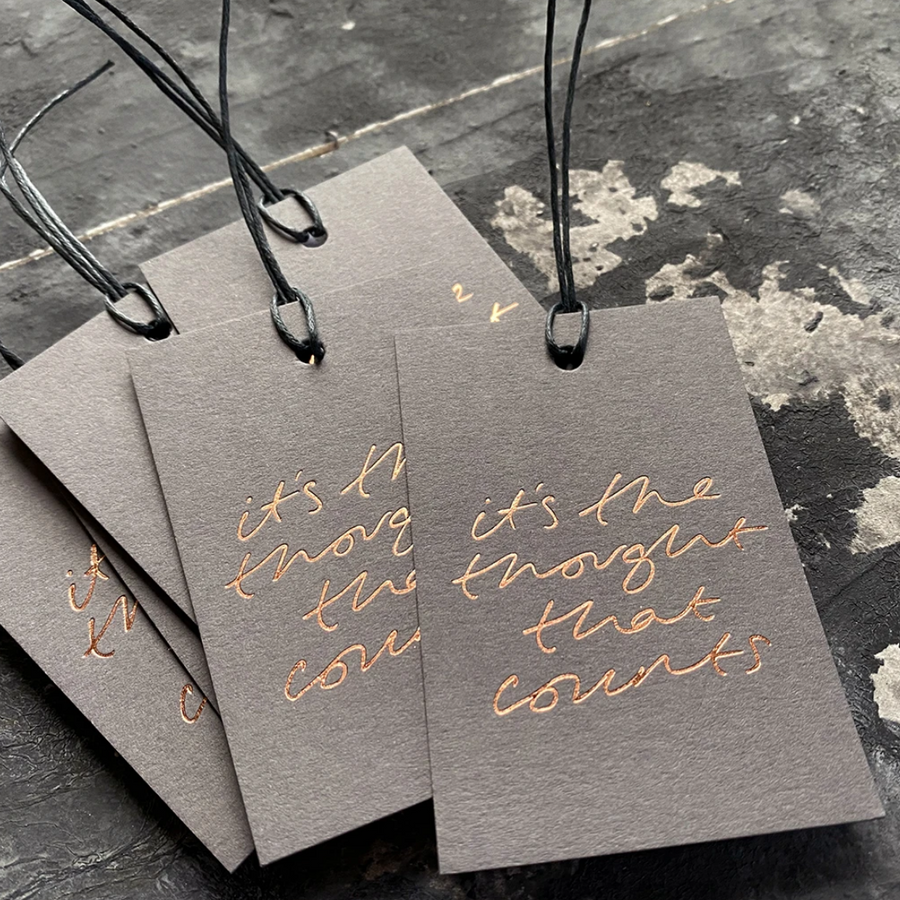 2
it's the
thought
that
counts
it's th
thoug
the
coun
it
th
c